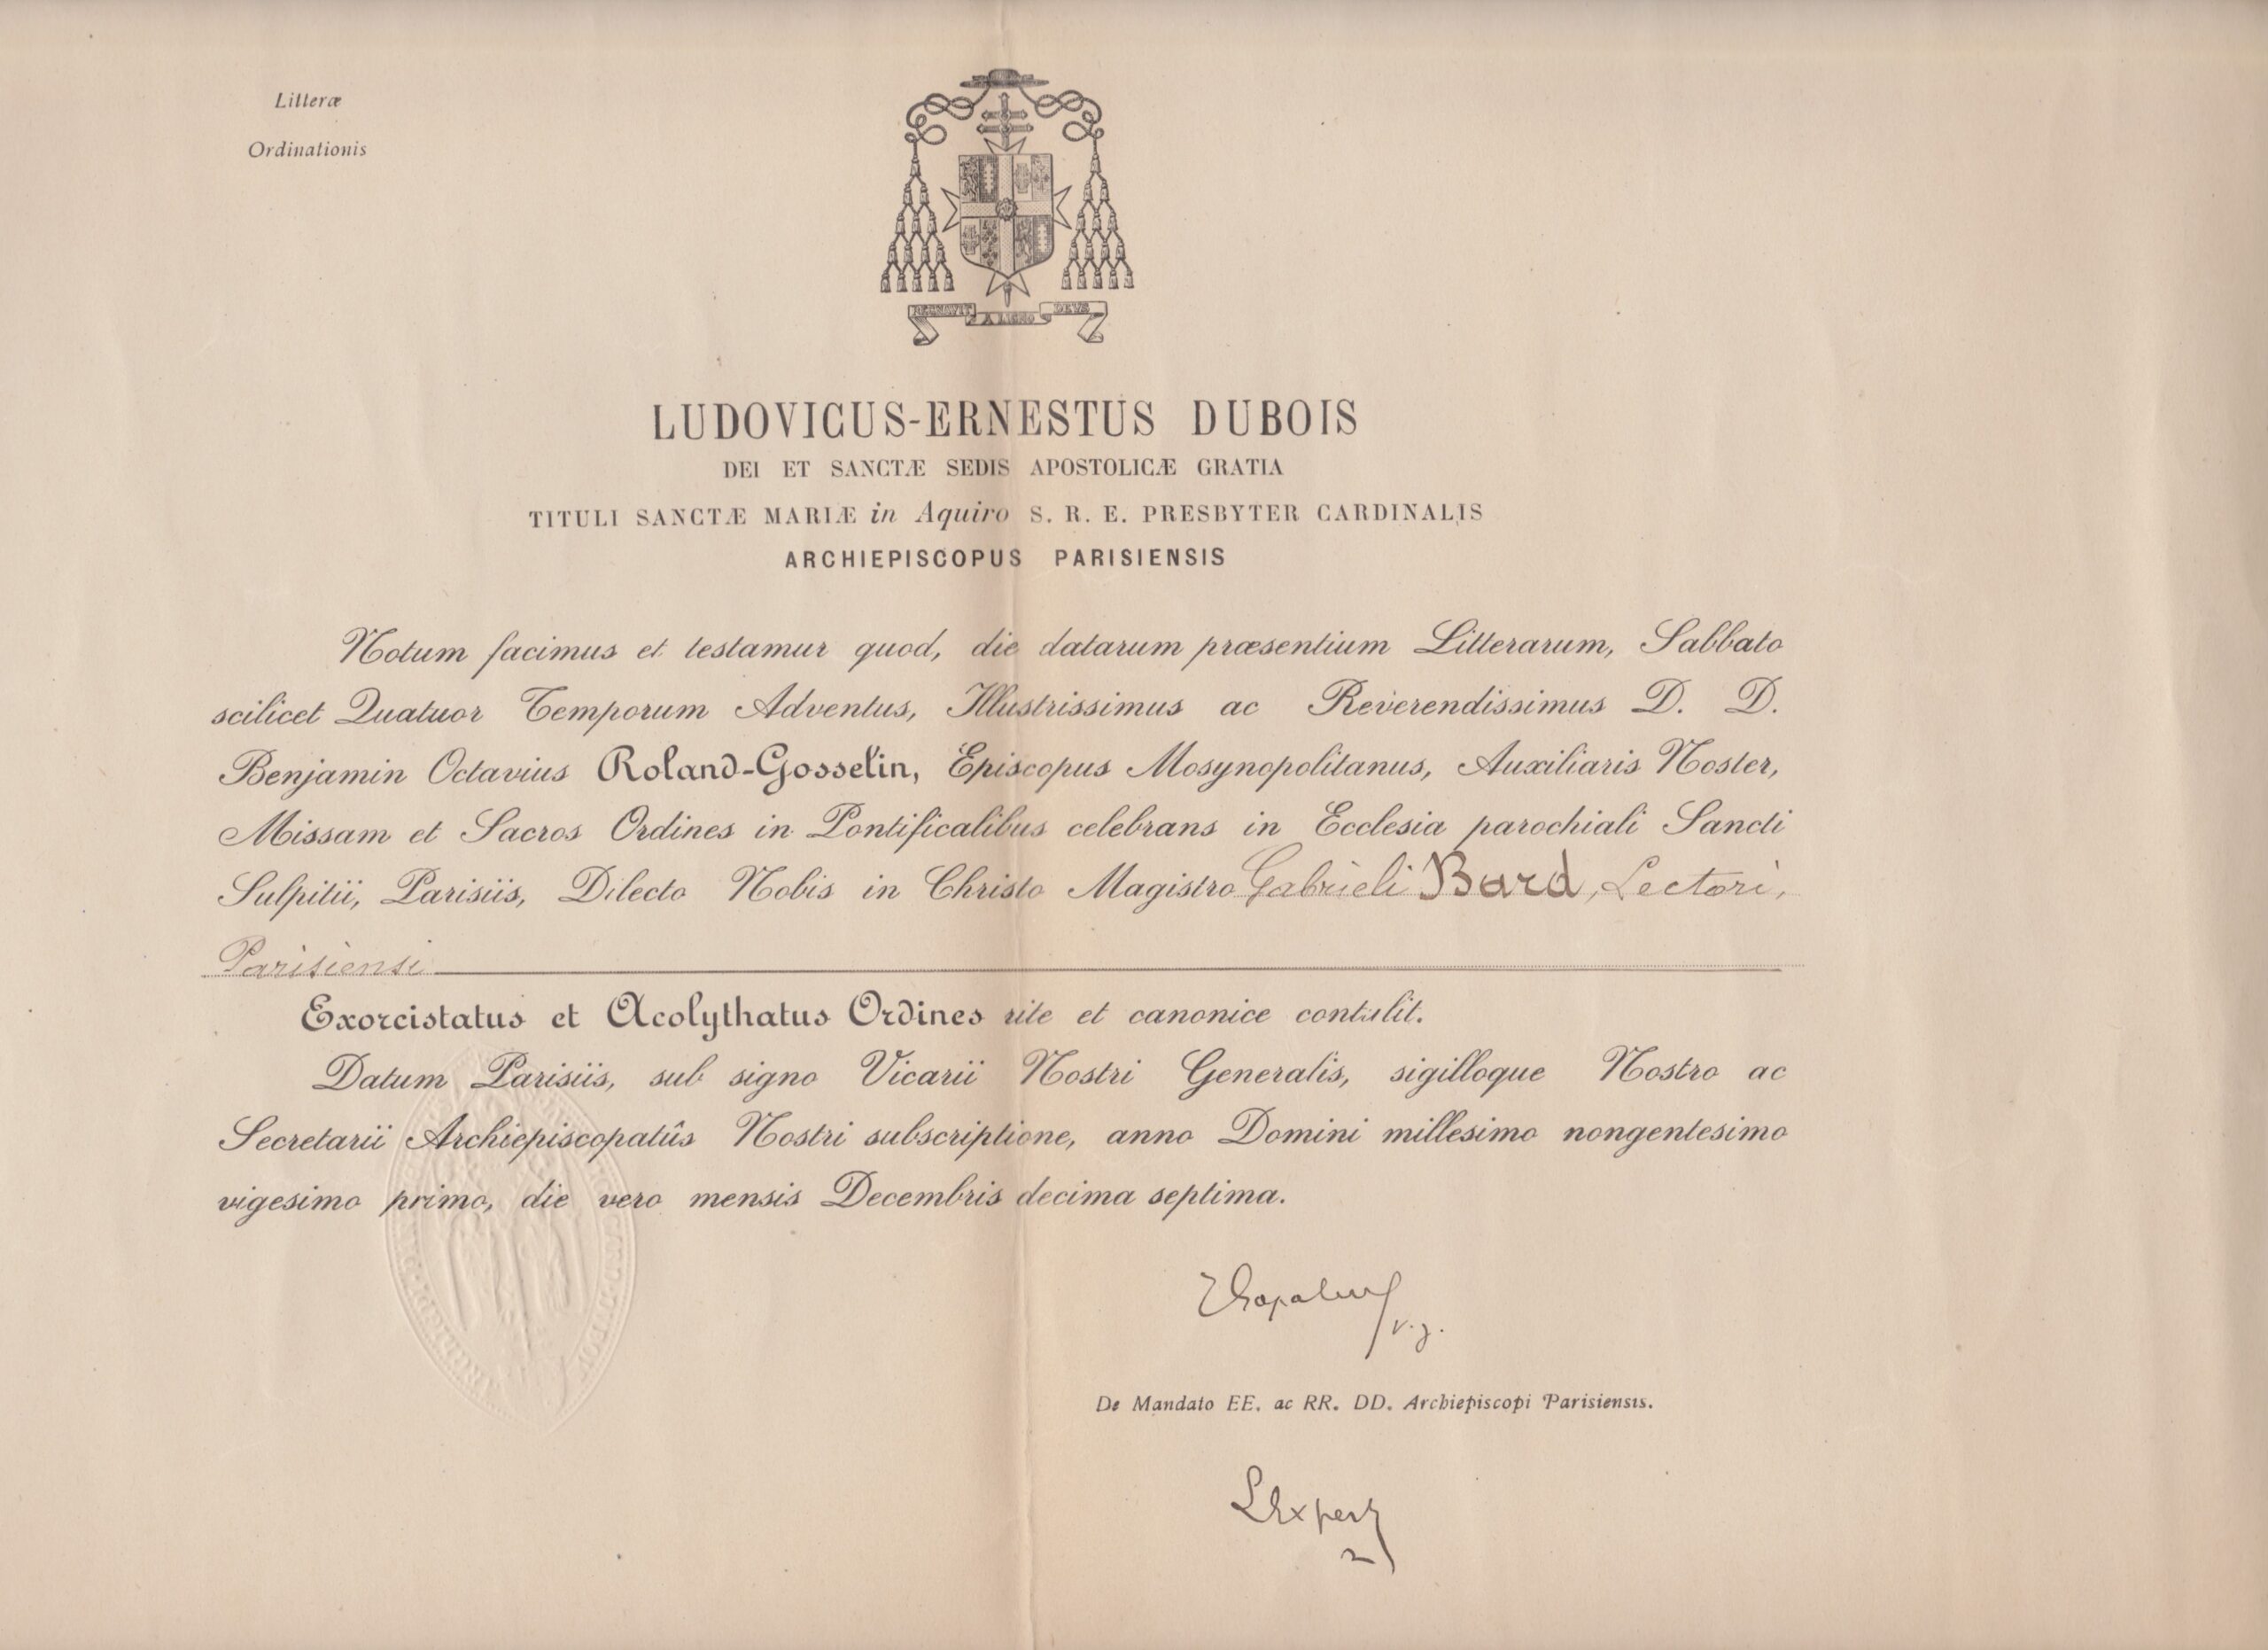 Litteræ
Ordinationis
REGNAVIT A LIGNO DEUS
LUDOVICUS-ERNESTUS DUBOIS
DEI ET SANCTÆ SEDIS APOSTOLICÆ GRATIA
TITULI SANCTÆ MARIÆ in Aquiro S. R. E. PRESBYTER CARDINALIS
ARCHIEPISCOPUS PARISIENSIS
Notum facimus et testamur quod, die datarum præsentium Litterarum, Sabbato
scilicet Quatuor Temporum Adventus, Illustrissimus ac Reverendissimus D. D.
Benjamin Octavius Roland-Gosselin, Episcopus Mosynopolitanus, Auxiliaris Noster,
Missam et Sacros Ordines in Pontificalibus celebrans in Ecclesia parochiali Sancti
Sulpitii, Parisiis, Dilecto Nobis in Christo Magistro Gabrieli Bard, Lectori,
Parisiensi
Exorcistatus et Acolythatus Ordines rite et canonice contulit.
Datum Parisiis, sub signo Vicarii Nostri Generalis, sigilloque Nostro ac
Secretarii Archiepiscopatûs Nostri subscriptione, anno Domini millesimo nongentesimo
vigesimo primo, die vero mensis Decembris decima septima.
v. g.
De Mandato EE. ac RR. DD. Archiepiscopi Parisiensis.